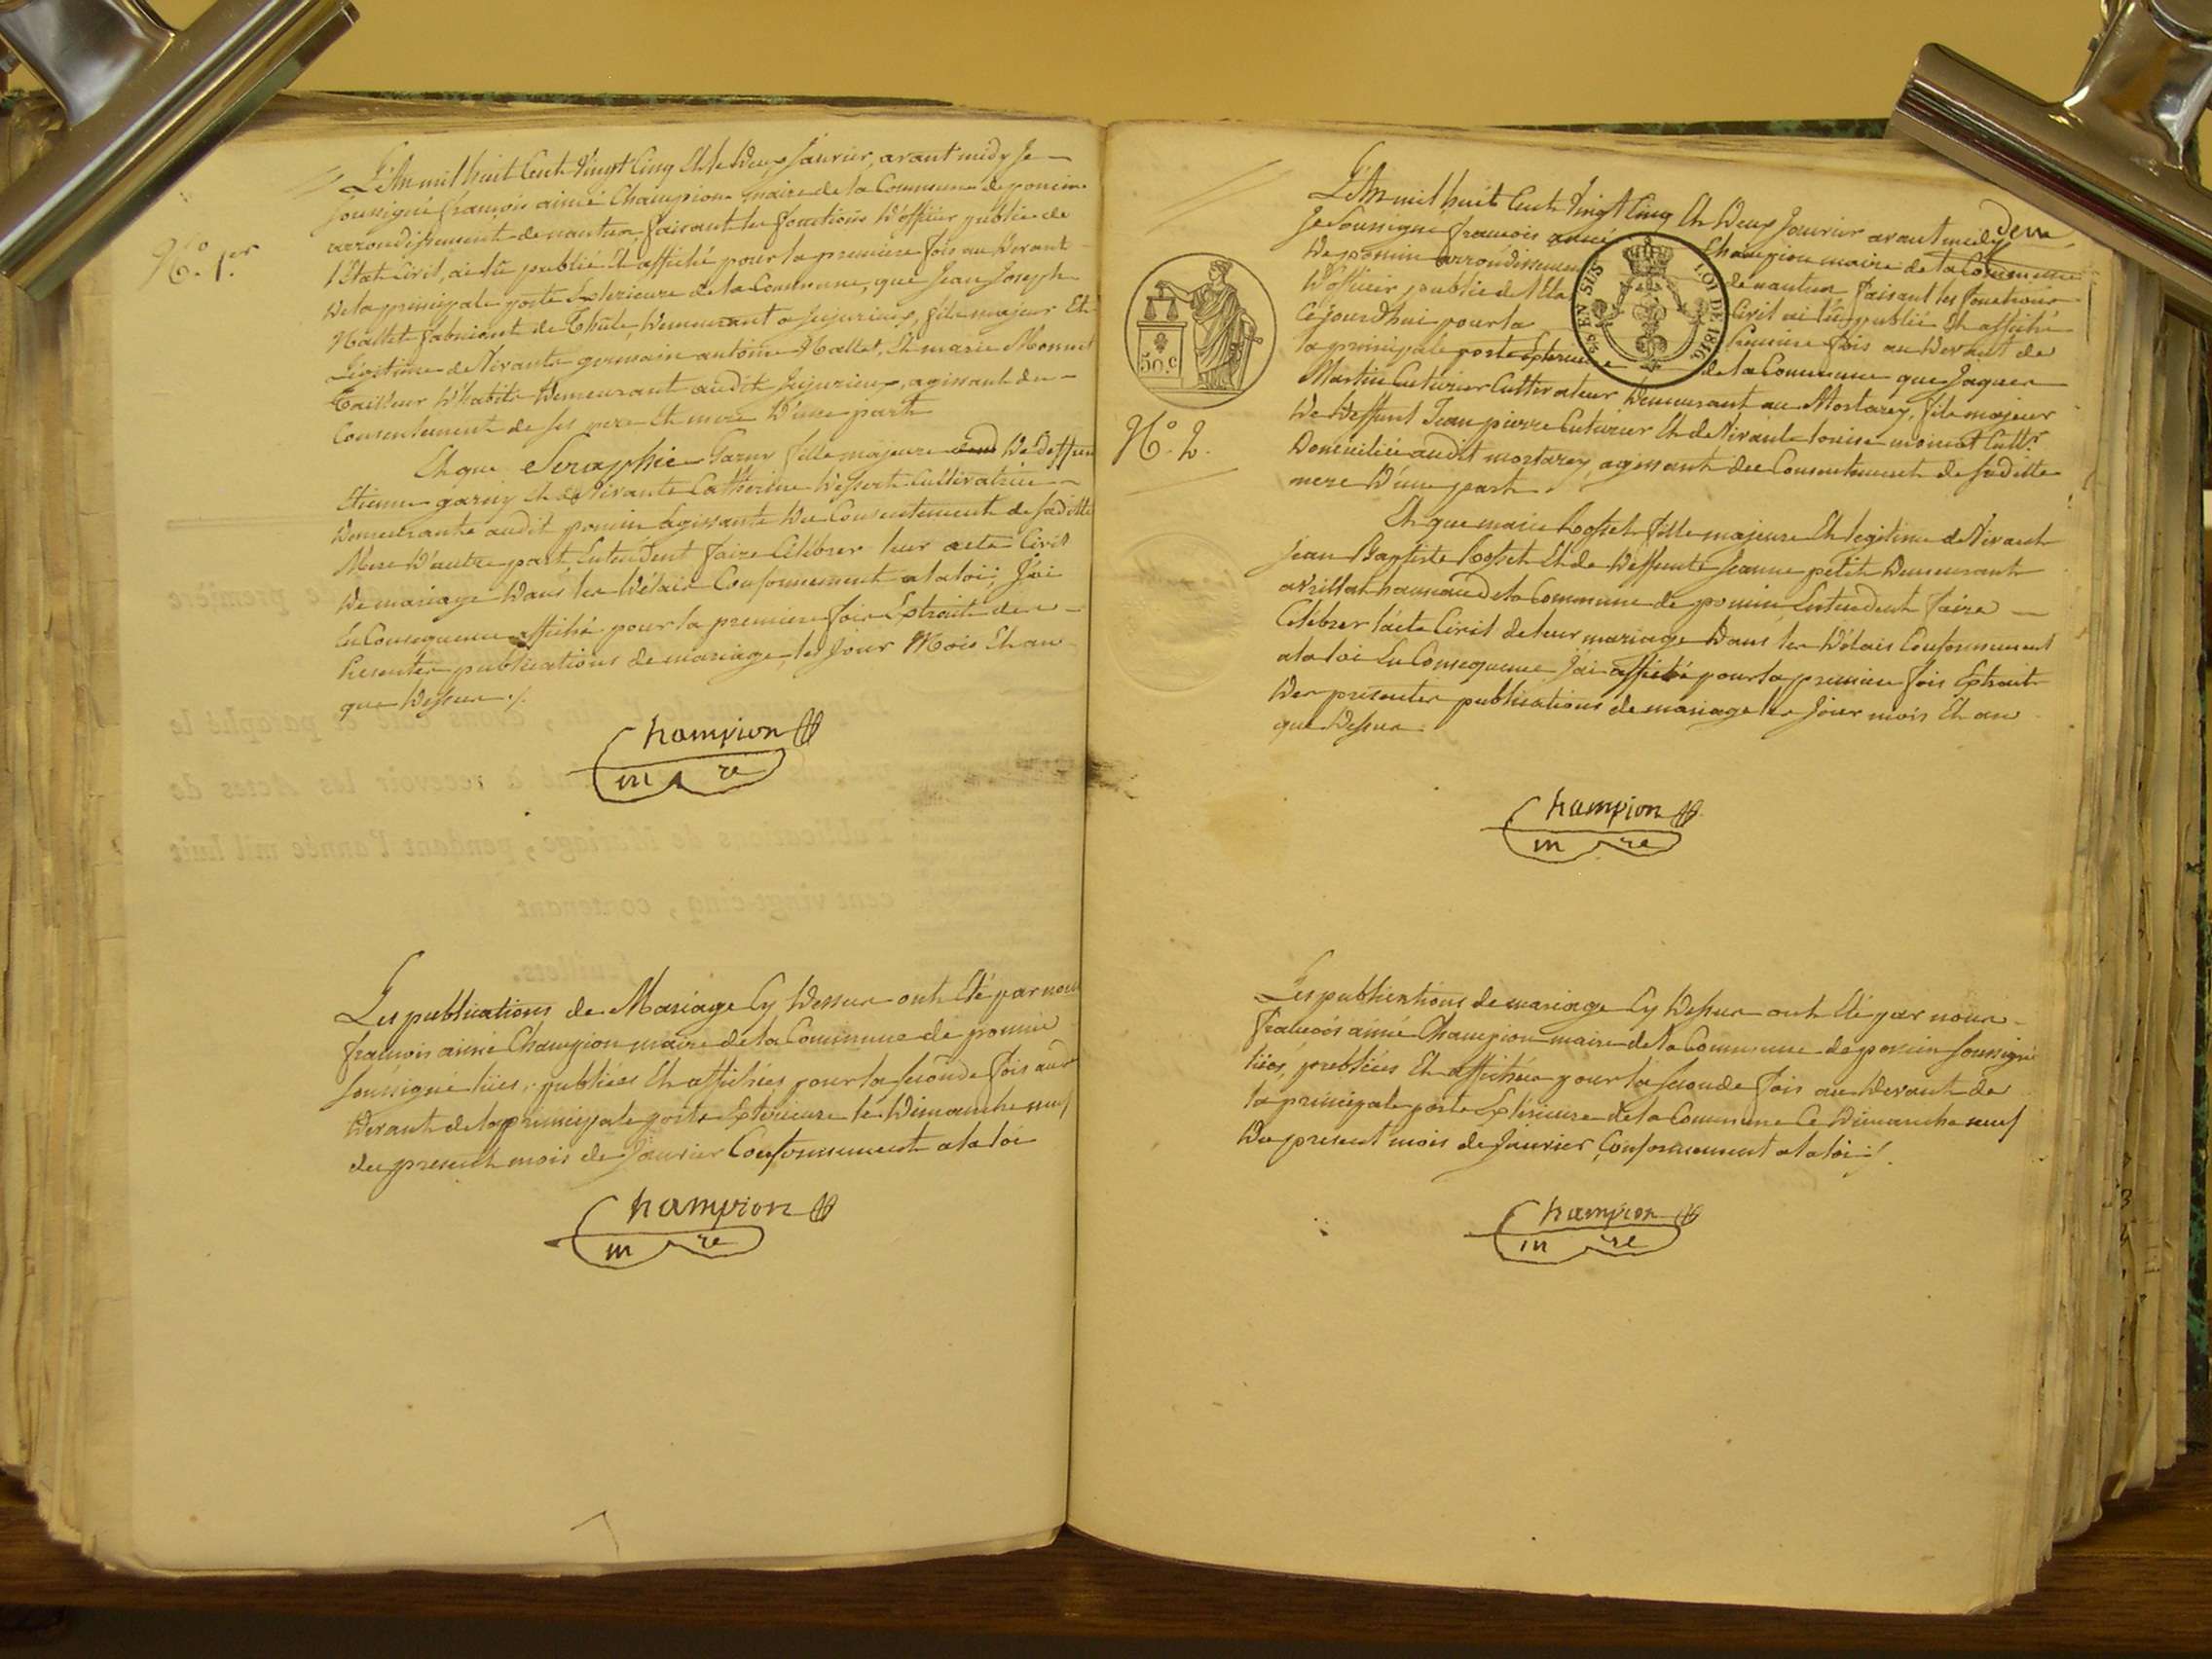 N.o 1.er
L'An mil huit Cent Vingt Cinq Et le Deux Janvier, avant midy Je
soussigné françois aimé Champion maire de la Commune de poncin
arrondissement de nantua, faisant les fonctions D'officier public de
l'État Civil, ai lû publié Et affiché pour la premiere fois au Devant
De la principale porte Exterieure de la Commune, que Jean Joseph
Mallet fabricant de Thule, Demeurant a Jujurieux, fils majeur Et
Légitime de Vivants germain antoine Mallet, Et marie Monnet
Tailleur D'habits Demeurant audit Jujurieux, agissant du
Consentement de ses pere Et mere D'une part
Et que Seraphie Garny fille majeure De Deffun
Etienne garny Et de Vivante Catherine Dessert Cultivatrice
Demeurante audit poncin agissante Du Consentement de saditte
Mere D'autre part, Entendent faire Célébrer leur acte Civil
De mariage Dans les Délais Conformement a la loi, J'ai
En Consequence affiché pour la premiere fois Extrait des
Presentes publications de mariage, les Jour Mois Et an
que Dessus ./.
Champion
m re
Les publications de Mariage Cy Dessus ont Eté par nous
françois aimé Champion maire de la Commune de poncin
soussigné lües, publiées Et affichées pour la seconde fois au
Devant de la principale porte Exterieure le Dimanche neuf
du present mois de Janvier Conformement a la loi
Champion
m re
deux
50 c
EN SUS
LOI DE 1816.
N.o 2.
L'An mil huit Cent Vingt Cinq Et Deux Janvier avant midy
Je Soussigné françois aimé Champion maire de la Commune
De poncin arrondissement de nantua faisant les fonctions
D'officier public de l'Etat Civil ai lû publié Et affiché
Cejourd'hui pour la Premiere fois au Devant de
la principale porte Exterieure de la Commune que Jaques
Martin Cuturier Cultivateur Demeurant au Mortarey, fils majeur
De Deffunt Jean pierre Cuturier Et de Vivante louise moinat Cultr
Domiciliée audit mortarey, agissant du Consentement de saditte
mere D'une part.
Et que marie Rosset fille majeure Et legitime de Vivant
Jean Baptiste Rosset Et de Deffunte Jeanne petit Demeurant
a hameau de la Commune de poncin Entendent faire
Célébrer l'acte Civil de leur mariage Dans les Délais Conformement
a la loi En Consequence J'ai affiché pour la premiere fois Extrait
Des presentes publications de mariage les Jour mois Et an
que Dessus.
Champion
m re
Les publications de mariage Cy Dessus ont Eté par nous
françois aimé Champion maire de la Commune de poncin soussigné
lües, publiées Et affichées pour la seconde fois au Devant de
la principale porte Extérieure de la Commune Ce Dimanche neuf
Du present mois de Janvier Conformement a la loi ./.
Champion
m re